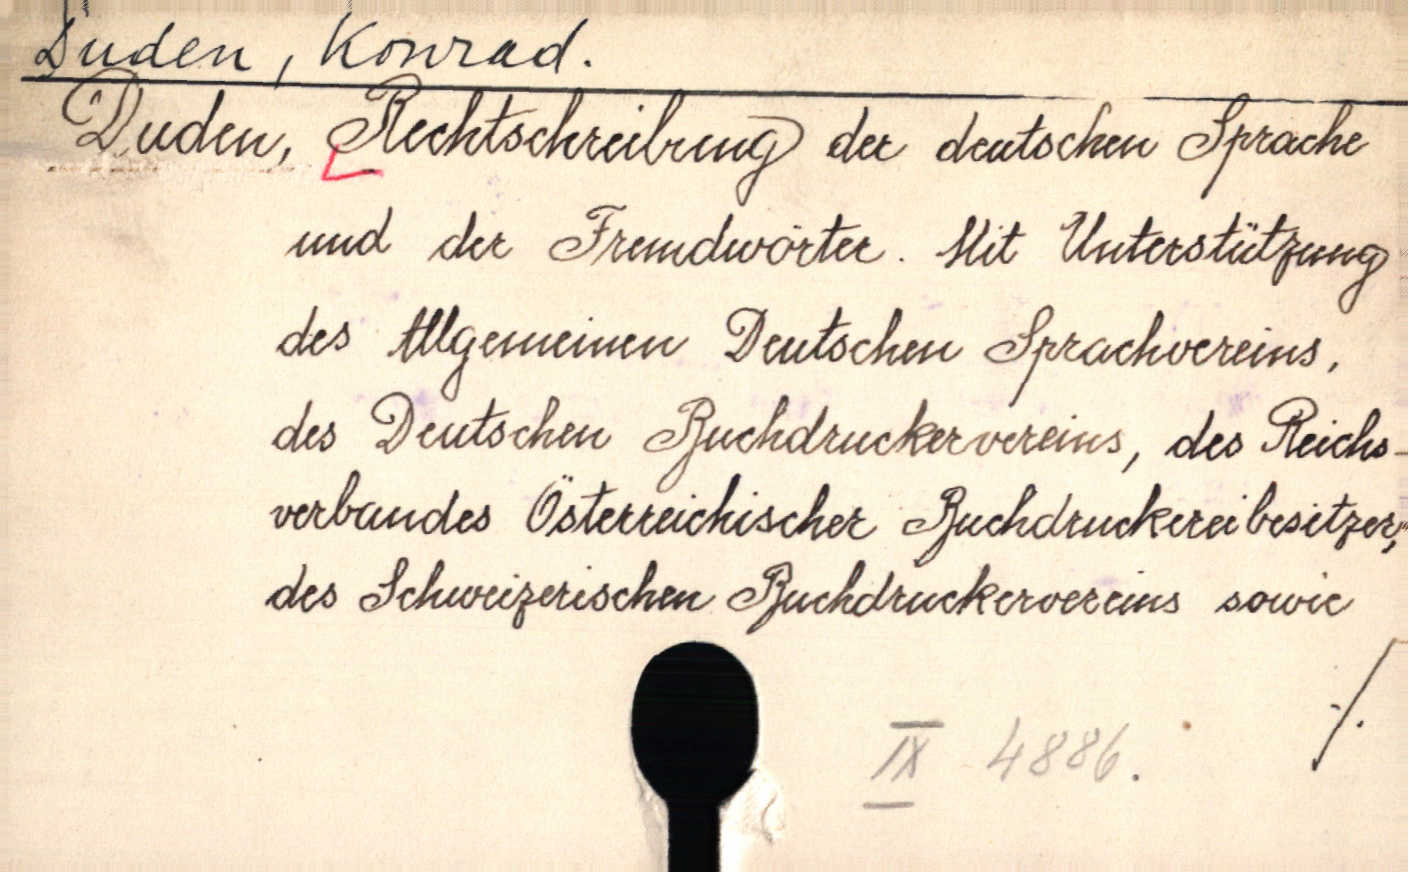 Duden, Konrad.
Duden, Rechtschreibung der deutschen Sprache
und der Fremdwörter. Mit Unterstützung
des Allgemeinen Deutschen Sprachvereins,
des Deutschen Buchdruckervereins, des Reichs-
verbandes Österreichischer Buchdruckereibesitzer,
des Schweizerischen Buchdruckervereins sowie
./.
IX 4886.